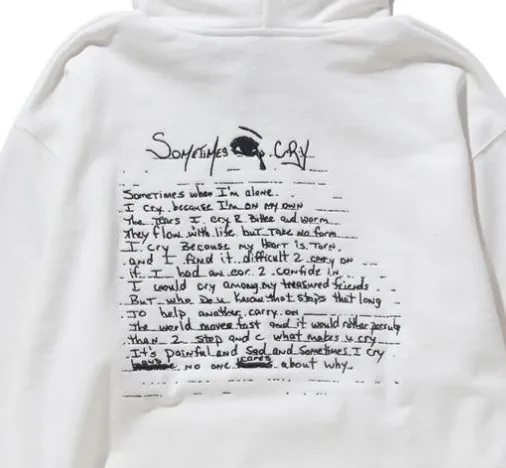 SOMETIMES CRY
Sometimes when I'm alone.
I cry because I'm ON MY OWN
The Tears I cry R Bitter and worm
They flow with life but Take No form
I cry Because my Heart is Torn.
and I find it difficult 2 carry on
if I had an ear 2 confide in
I would cry among my treasured friends
But who Do u Know that stops that long
TO help another carry on
The world moves fast and it would rather pass by
than 2 Stop and C what makes u cry
It's painful and Sad and Sometimes I cry
NO one cares about why